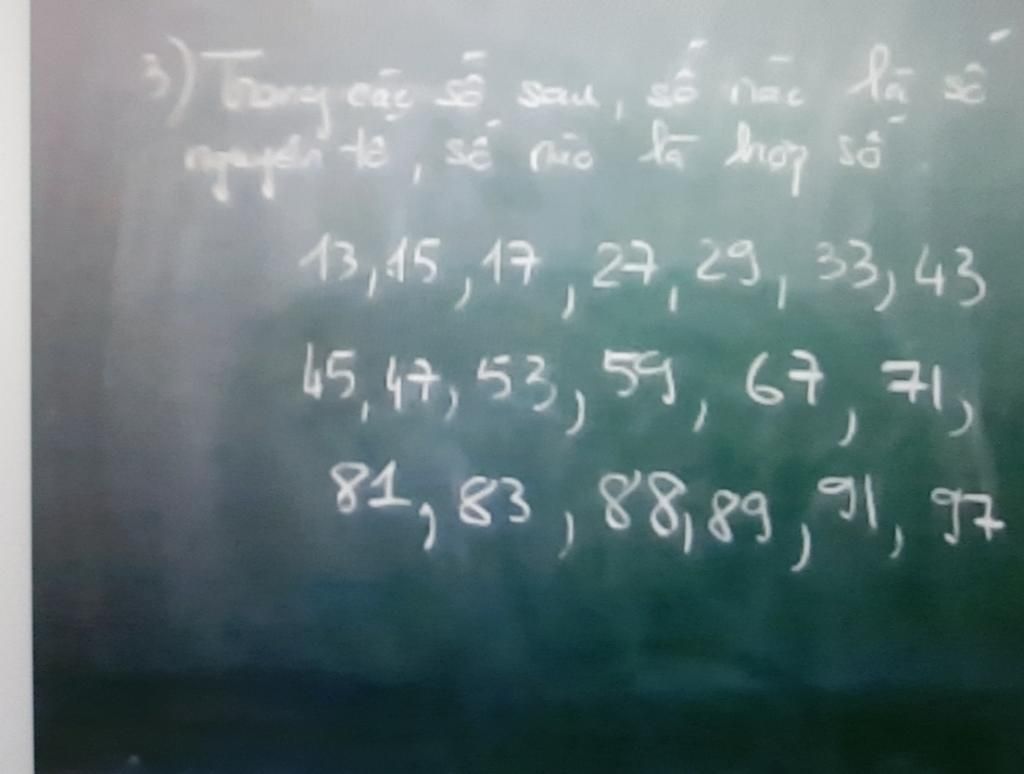 3) Trong các số sau, số nào là số
nguyên tố, số nào là hợp số
13, 15, 17, 27, 29, 33, 43
45, 47, 53, 59, 67, 71,
81, 83, 88, 89, 91, 97